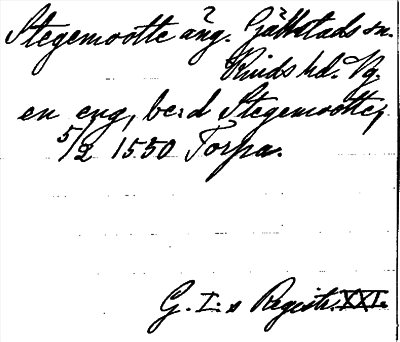 Stegemootte äng. Gällstads sn.
Kinds hd. Vg.
en eng, be:d Stegemootte,
5/2 1550 Torpa.
G. I:s Registr. XXI.